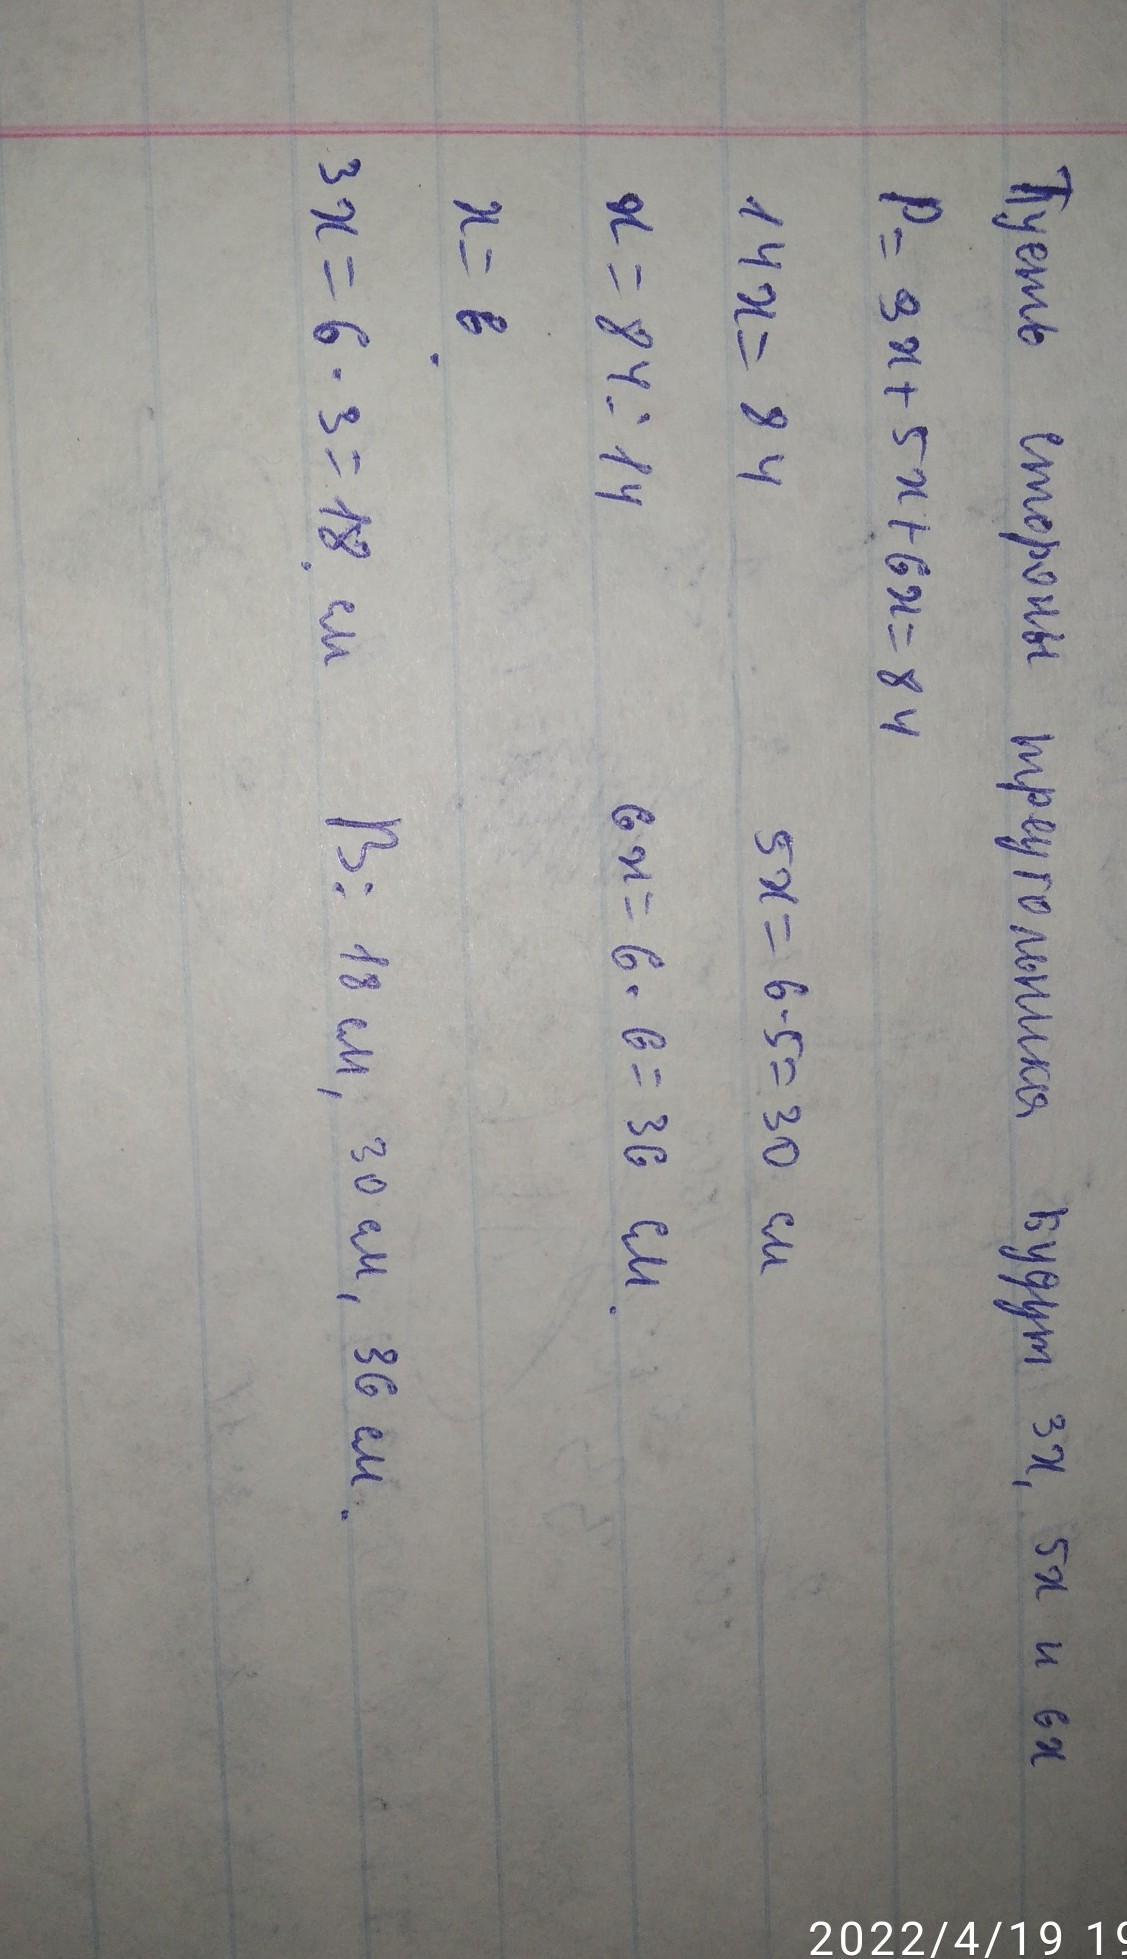 Пусть стороны треугольника будут 3x, 5x и 6x
P = 3x + 5x + 6x = 84
14x = 84
5x = 6·5 = 30 см
x = 84 : 14
6x = 6·6 = 36 см.
x = 6.
3x = 6·3 = 18. см
В: 18 см, 30 см, 36 см.
2022/4/19 19